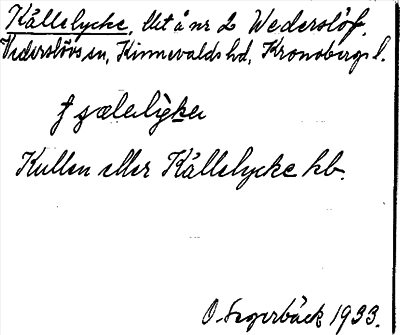 Källelycke, Utå nr 2 Wederslöf.
Vederslövs sn, Kinnevalds hd, Kronobergs l.
Kullen eller Källelycke hb.
O. Segerbäck 1933.